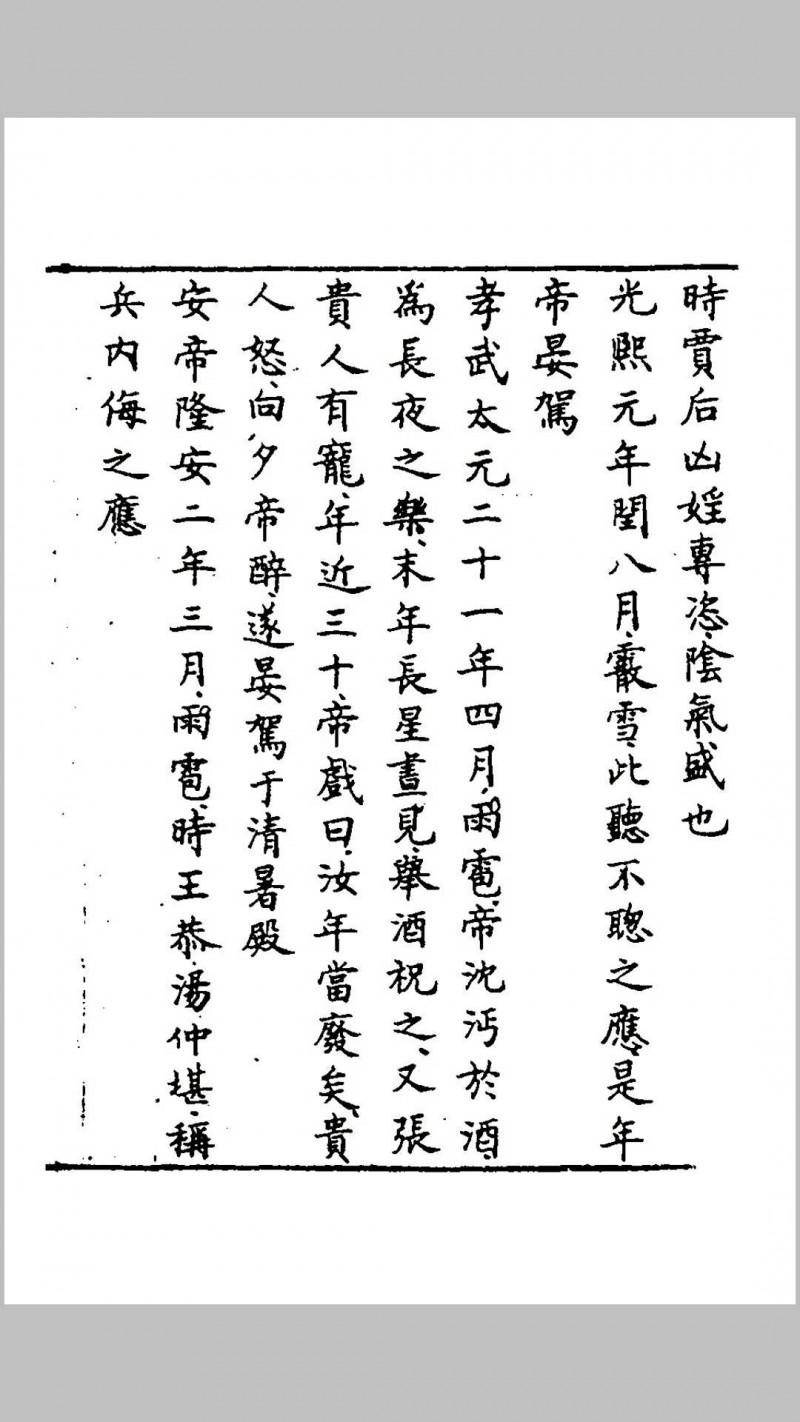 時賈后凶婬專恣、陰氣盛也
光熙元年閏八月、霰雪、此聽不聰之應、是年
帝晏駕
孝武太元二十一年四月、雨雹、帝沈沔於酒、
為長夜之樂、末年長星晝見、舉酒祝之、又張
貴人有寵、年近三十、帝戲曰、汝年當廢矣、貴
人怒、向夕帝醉、遂晏駕于清暑殿
安帝隆安二年三月、雨雹、時王恭、湯仲堪、稱
兵內侮之應